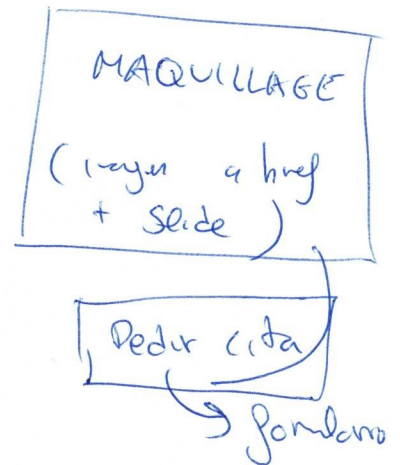 MAQUILLAGE
(imagen a href
+ Slide)
Pedir cita
formulario